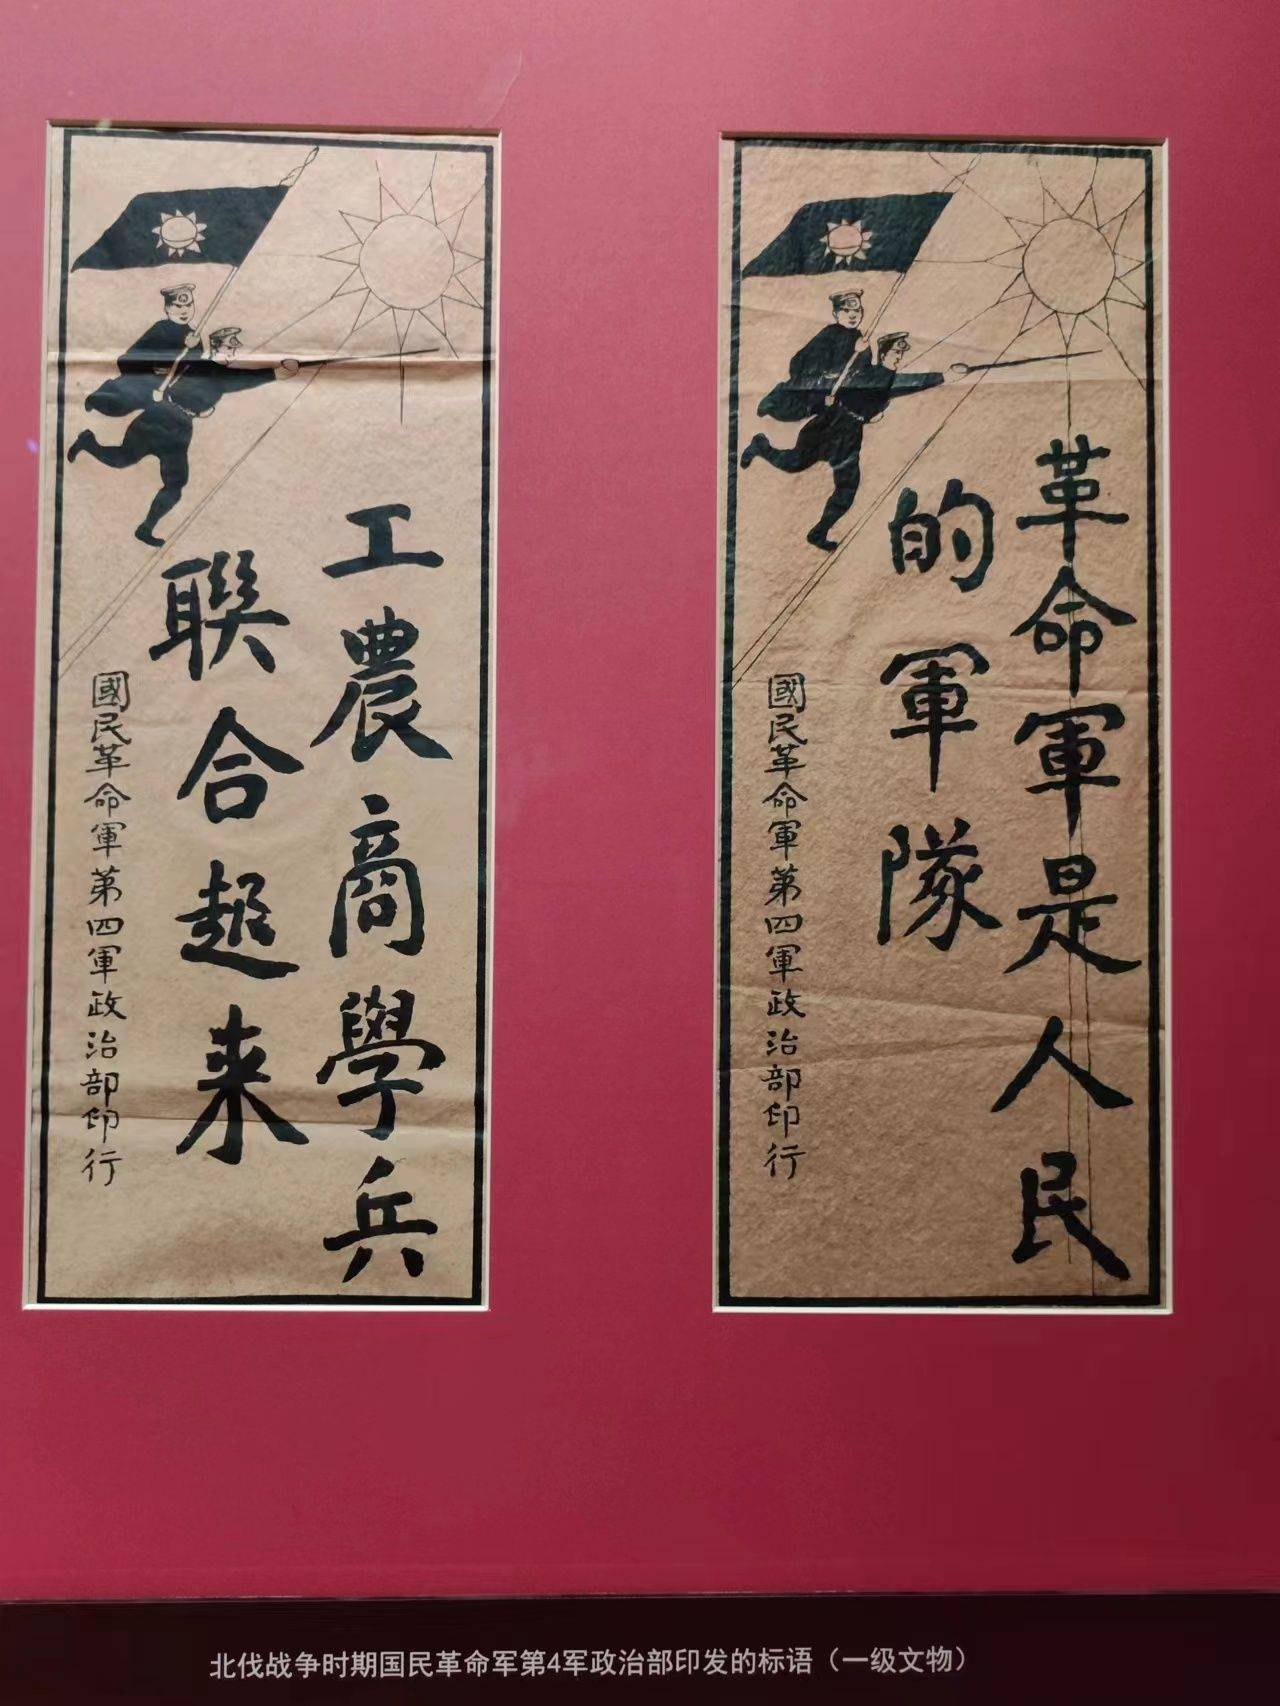 工農商學兵
聯合起来
國民革命軍第四軍政治部印行
革命軍是人民
的軍隊
國民革命軍第四軍政治部印行
北伐战争时期国民革命军第4军政治部印发的标语（一级文物）